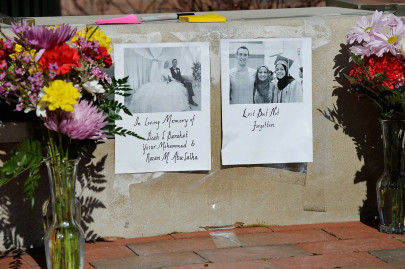 In Loving Memory of
Deah S Barakat
Yusor Mohammad &
Razan M. Abu-Salha
Lost But Not
Forgotten